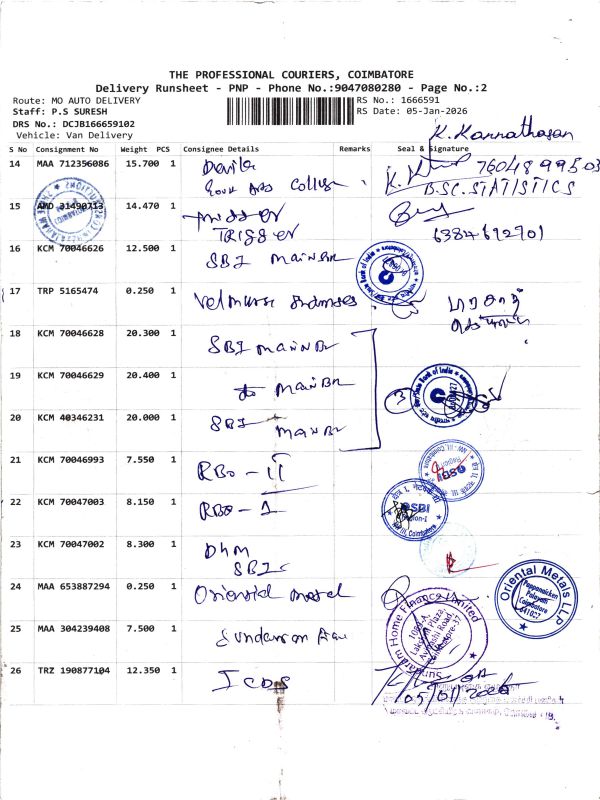 THE PROFESSIONAL COURIERS, COIMBATORE
Delivery Runsheet - PNP - Phone No.:9047080280 - Page No.:2
Route: MO AUTO DELIVERY
Staff: P.S SURESH
DRS No.: DCJB166659102
Vehicle: Van Delivery
RS No.: 1666591
RS Date: 05-Jan-2026
S No Consignment No Weight PCS Consignee Details Remarks Seal & Signature
K. Kannathasan
14 MAA 712356086 15.700 1
Govt Arts College
7604899503
B.SC.STATISTICS
15 AMD 31490713 14.470 1
TRIGGER
6384692701
16 KCM 70046626 12.500 1 SBI Main Br
State Bank of India
17 TRP 5165474 0.250 1
18 KCM 70046628 20.300 1 SBI Main Br
19 KCM 70046629 20.400 1 Main Br
3
State Bank of India
20 KCM 40346231 20.000 1 SBI Main Br
21 KCM 70046993 7.550 1 RBO - II
22 KCM 70047003 8.150 1 RBO - 1
SBI
Region-I
Coimbatore
23 KCM 70047002 8.300 1 DHM
SBI
24 MAA 653887294 0.250 1 Oriental
Oriental Metals LLP
Pappanaicken
Palayam
Coimbatore
641037
25 MAA 304239408 7.500 1 Sundaram
Sundaram Home Finance Limited
Lakshmi Plaza,
Avinashi Road,
Coimbatore-37
26 TRZ 190877104 12.350 1 ICDS
05/01/2026